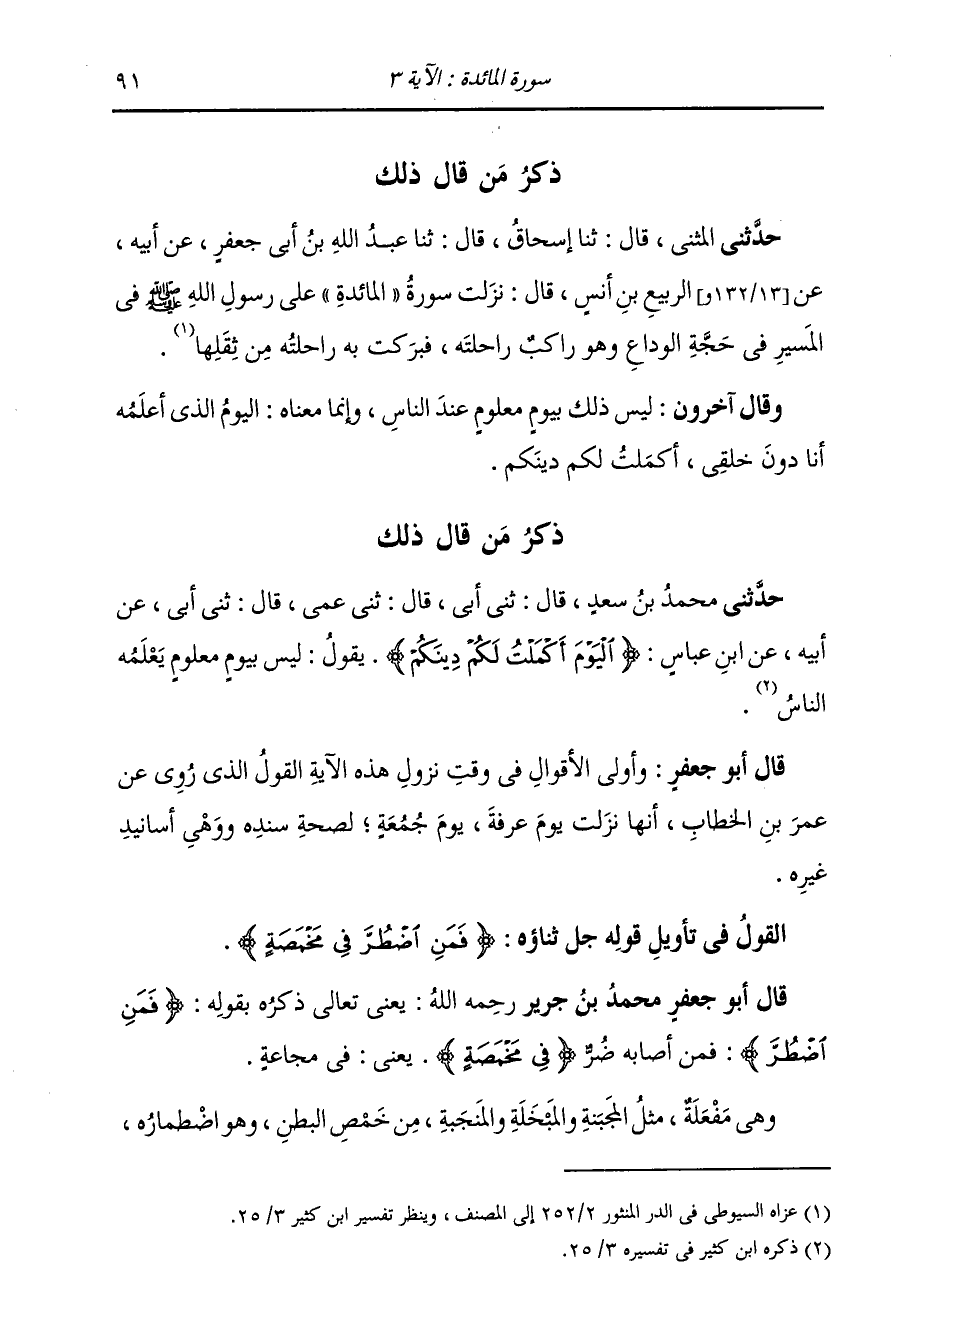 سورة المائدة : الآية ٣ ٩١
ذكرُ مَن قال ذلك
حدَّثنى المثنى ، قال : ثنا إسحاقُ ، قال : ثنا عبدُ اللهِ بنُ أبى جعفرٍ ، عن أبيه ،
عن [١٣٢/١٣و] الربيعِ بنِ أنسٍ ، قال : نزَلت سورةُ « المائدةِ » على رسولِ اللهِ ﷺ فى
المَسيرِ فى حَجَّةِ الوداعِ وهو راكبٌ راحلتَه ، فبرَكت به راحلتُه مِن ثِقَلِها(١) .
وقال آخرون : ليس ذلك بيومٍ معلومٍ عندَ الناسِ ، وإنما معناه : اليومُ الذى أعلَمُه
أنا دونَ خلقِى ، أكمَلتُ لكم دينَكم .
ذكرُ مَن قال ذلك
حدَّثنى محمدُ بنُ سعدٍ ، قال : ثنى أبى ، قال : ثنى عمى ، قال : ثنى أبى ، عن
أبيه ، عن ابنِ عباسٍ : ﴿ ٱلْيَوْمَ أَكْمَلْتُ لَكُمْ دِينَكُمْ ﴾ . يقولُ : ليس بيومٍ معلومٍ يَعْلَمُه
الناسُ(٢) .
قال أبو جعفرٍ : وأولى الأقوالِ فى وقتِ نزولِ هذه الآيةِ القولُ الذى رُوِى عن
عمرَ بنِ الخطابِ ، أنها نزَلت يومَ عرفةَ ، يومَ جُمُعَةٍ ؛ لصحةِ سندِه ووَهْىِ أسانيدِ
غيرِه .
القولُ فى تأويلِ قولِه جل ثناؤه : ﴿ فَمَنِ ٱضْطُرَّ فِى مَخْمَصَةٍ ﴾ .
قال أبو جعفرٍ محمدُ بنُ جريرٍ رحِمه اللهُ : يعنى تعالى ذكرُه بقولِه : ﴿ فَمَنِ
ٱضْطُرَّ ﴾ : فمن أصابه ضُرٌّ ﴿ فِى مَخْمَصَةٍ ﴾ . يعنى : فى مجاعةٍ .
وهى مَفْعَلَةٌ ، مثلُ المَجْبَنةِ والمَبْخَلَةِ والمَنجَبةِ ، مِن خَمْصِ البطنِ ، وهو اضْطمارُه ،
(١) عزاه السيوطى فى الدر المنثور ٢٥٢/٢ إلى المصنف ، وينظر تفسير ابن كثير ٣/ ٢٥.
(٢) ذكره ابن كثير فى تفسيره ٣/ ٢٥.